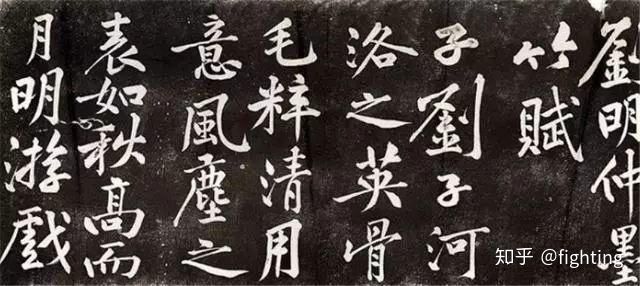 劉明仲墨
竹賦
子劉子河
洛之英骨
毛粹清用
意風塵之
表如秋高而
月明游戲
知乎 @fighting